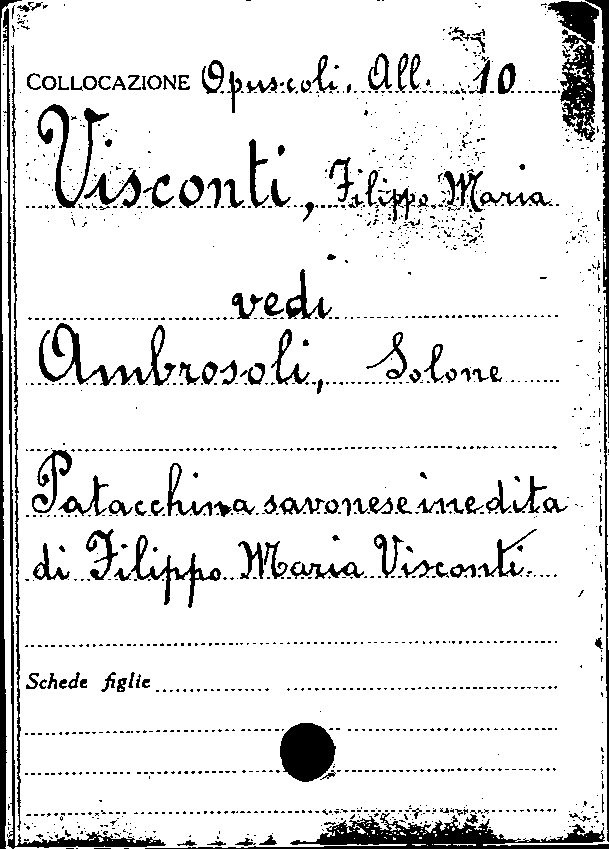 COLLOCAZIONE Opuscoli. All. 10
Visconti, Filippo Maria
vedi
Ambrosoli, Solone
Patacchina savonese inedita
di Filippo Maria Visconti.
Schede figlie